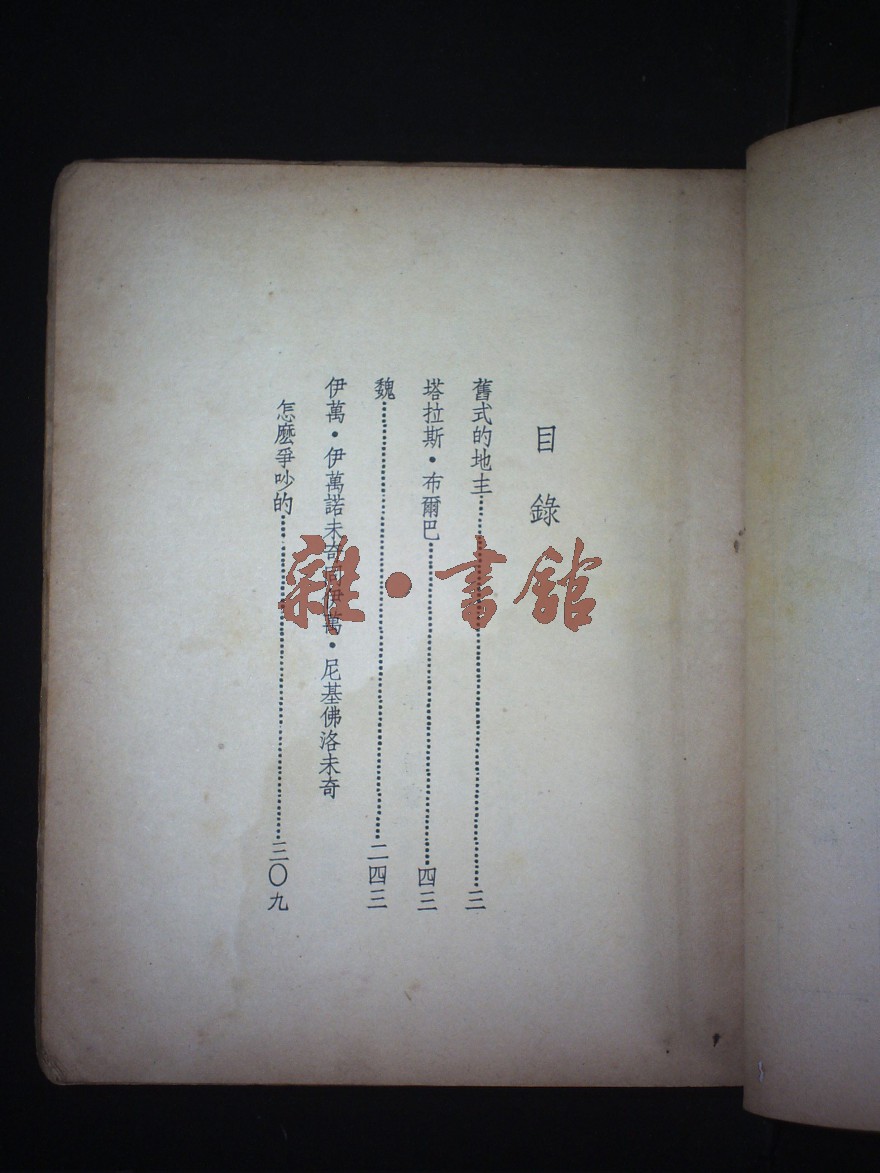 目錄
舊式的地主……三
塔拉斯・布爾巴……四三
魏……二四三
伊萬・伊萬諾未奇同伊萬・尼基佛洛未奇
怎麽爭吵的……三〇九
雜・書館